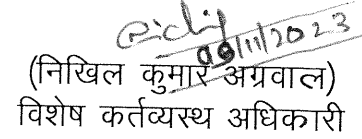 09/11/2023
(निखिल कुमार अग्रवाल)
विशेष कर्तव्यस्थ अधिकारी